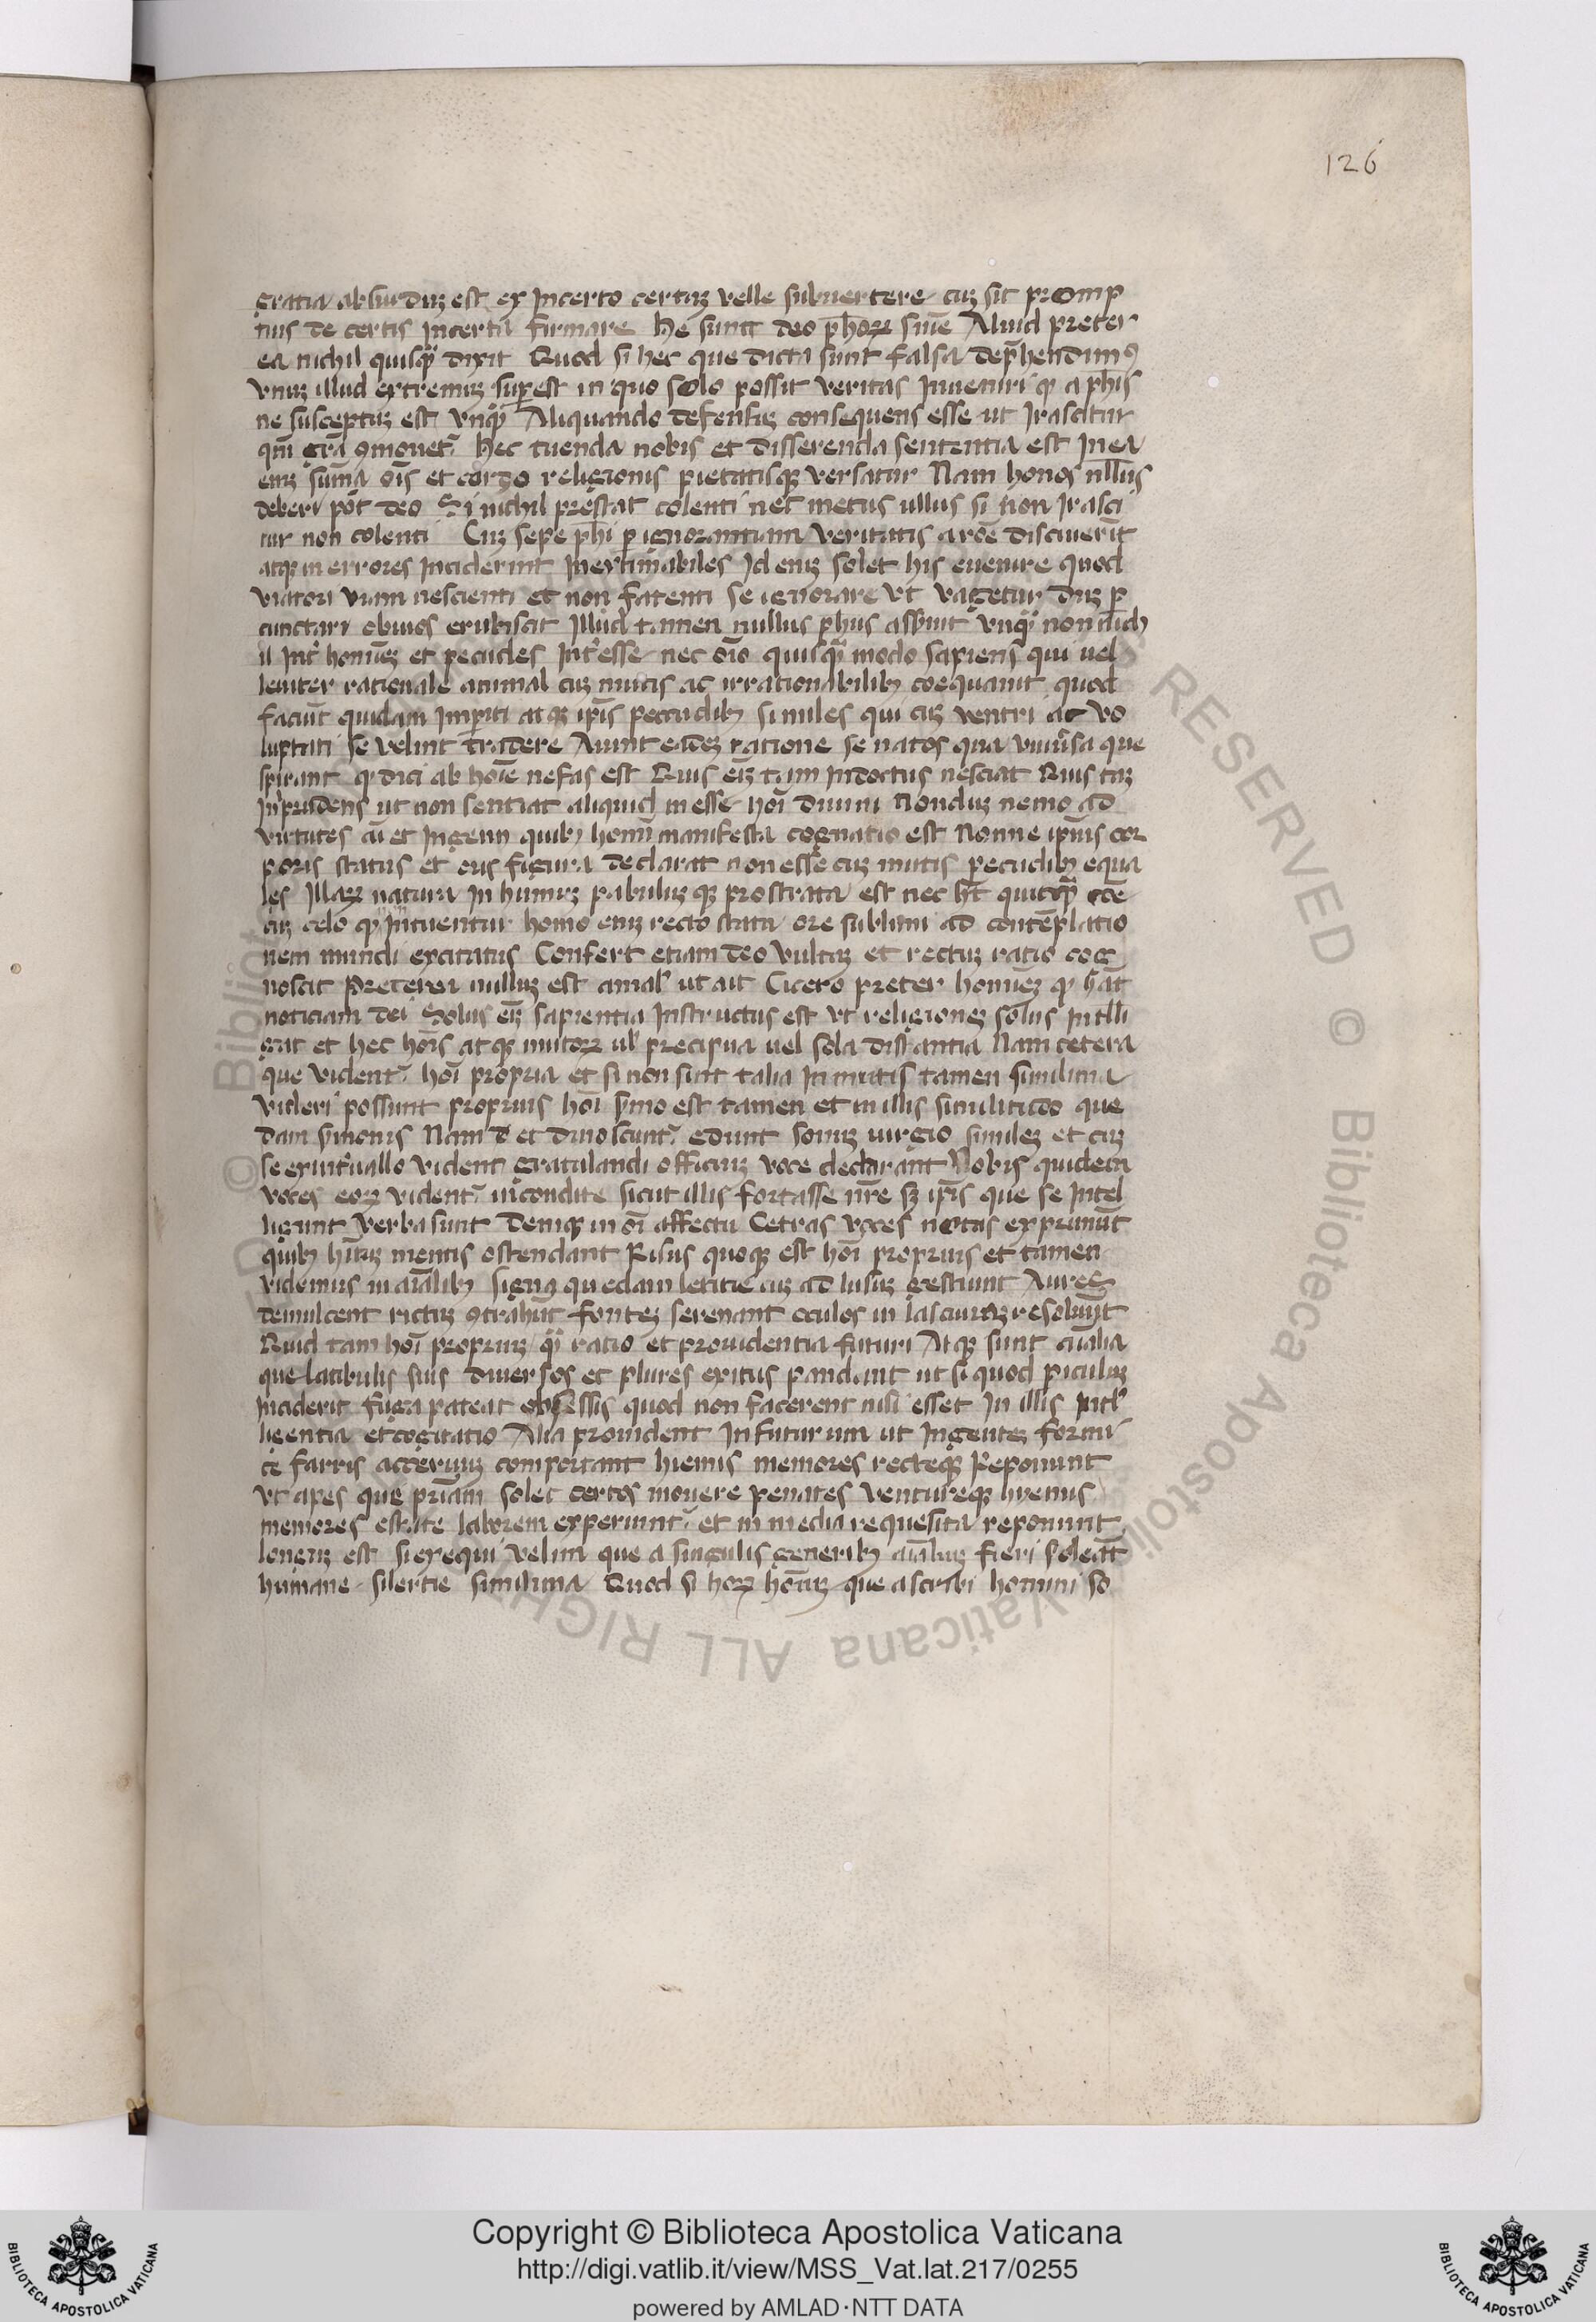 126
gratia absurduz est ex Incerto certuz velle subuertere cuz sit promp
tius de certis incerta firmare He sunt deo ph̄oꝝ sn̄ie Aliud preter
ea nichil quisq̄ dixit Quod si hec que dicta sunt falsa dep̄hendimꝰ
vnuz illud extremuz suꝑest in quo solo possit veritas Inueniri qꝫ a ph̄is
ne susceptuz est vnq̄ Aliquando defensuz consequens esse ut Irascatur
qm̄ gr̄a ꝯmouet᷑ hec tuenda nobis et disserenda sententia est In ea
eniz suma oīs et cardo religionis pietatisqꝫ versatur Nam honos nll̄us
deberi pōt deo Si nichil prestat colenti nec metus ullus si non Irasci
tur non colenti Cuz sepe ph̄i ꝑ ignorantiam veritatis a rōe disciuerīt
atqꝫ in errores Inciderint Inextimabiles Id eniz solet his euenire quod
viatori viam nescienti et non fatenti se ignorare vt vagetur duz ꝑ
cunctari obuios erubiscat Illud tamen nullus ph̄us ass̄uit vnq̄ non dich
il Int᷑ homīez et pecudes Int᷑esse nec oīo quisq̄ modo sapiens qui uel
leuiter rationale animal cuz mutis ac irrationabilibꝫ coequauit quod
faciūt quidam Imꝑiti atqꝫ ip̄is peccudibꝫ similes qui cuz ventri ac vo
luptati se velint tradere Aiunt eadez ratione se natos qua vniu᷑sa que
spirant qꝫ dici ab hoīe nefas est Quis eīz tam Indoctus nesciat Quis taz
Inprudens ut non sentiat aliquid in esse hoī diuini Nonduz nemo ad
virtutes aī et Ingenii quibꝫ homī manifesta cognatio est Nonne ipīus cor
poris status et oris figura declarat non esse cuz mutis pecudibꝫ equa
les Illaꝝ natura In humuz pabuluzqꝫ prostrata est nec hт̄ quicq̄ cōe
cuz celo qꝫ Intuentur homo eniz recto statu ore sublimi ad contēplatio
nem mundi excitatus Confert etiam deo vultuz et rectuz ratio cog
noscit Preterea nulluz est aīmal ut ait Cicero preter homīez qꝫ hāt
noticiam dei Solus eīz sapientia Instructus est vt religionez solus Intlli
gat et hec hoīs atqꝫ mutoꝝ ul̄ precipua uel sola distantia Nam cetera
que vident᷑ hoī propria et si non sunt talia In mutis tamen similima
videri possunt proprius hoī s̄mo est tamen et in illis similitudo que
dam s̄monis Nam d et dinoscunt᷑ edunt sonuz iurgio similez et cuz
se ex int᷑uallo vident gratulandi officiuz voce declarant Nobis quidem
voces eoꝝ vident᷑ incondite sicut illis fortasse nr̄e sꝫ ip̄is que se Intel
ligunt verba sunt Deniqꝫ in oī affectu Cetras voces notas exprimūt
quibꝫ hītuz mentis ostendant Risus quoqꝫ est hoī proprius et tamen
videmus in aīalibꝫ signa quedam letitie cuz ad lusuz gestiunt Aures
demulcent rictuz ꝯtrahūt fontez serenant oculos in lasciuiaz resoluūt
Quid tam hoī propriuz q̄ ratio et prouidentia futuri Atqꝫ sunt aīalia
que latibulis suis diuersos et plures exitus pandant ut si quod piculuz
Inciderit fuga pateat obsessis quod non facerent nisi esset In illis Intl̄
ligentia et cogitatio Alia prouident In futurum ut Ingentez formi
ce farris aceruuz comportant hiemis memores recteqꝫ Reponunt
vt apes que pr̄iam solet certos mouere penates ventureqꝫ hyemis
memores estate laborem experiunt᷑ et in media requesita reponunt
longuz est si exequi velim que a singulis generibꝫ aīaluz fieri soleāt
humane silertie similima Quod si hoꝝ hoīuz que ascribi homini so